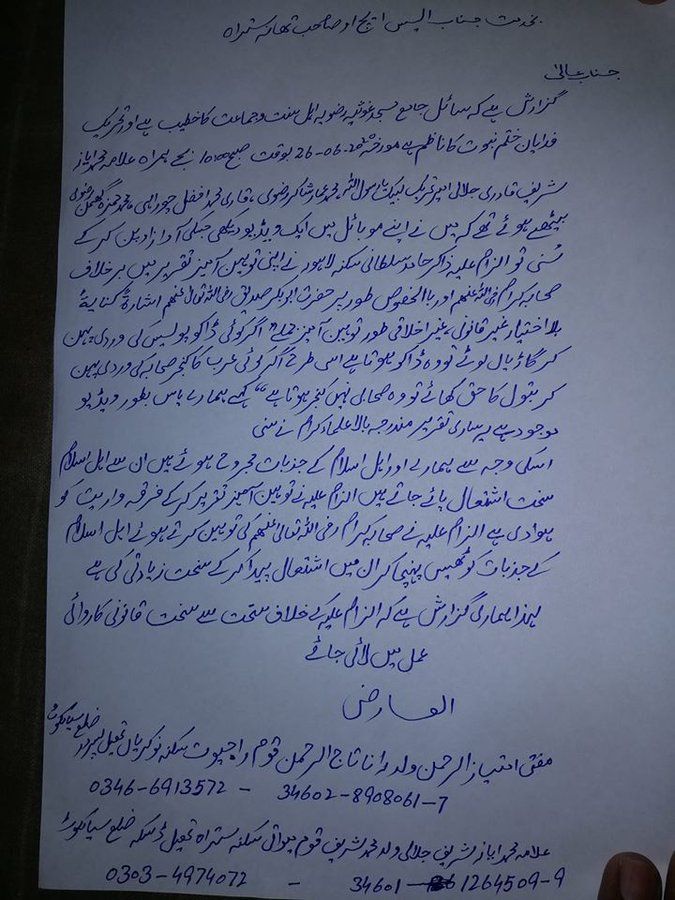 بخدمت جناب ایس ایچ او صاحب تھانہ ستراہ
جناب عالیٰ
گزارش ہے کہ سائل جامع مسجد غوثیہ رضویہ اہل سنت و جماعت کا خطیب ہے اور تحریک
فدایان ختم نبوت کا ناظم ہے مورخہ 26-06-20 بوقت صبح 10:00 بجے ہمراہ علامہ محمد ایاز
شریف قادری جلالی امیر تحریک لبیک یا رسول اللہ، محمد عمار شاکر رضوی، قاری محمد افضل چوراہی، محمد حمزہ گھمن رضوی
بیٹھے ہوئے تھے کہ میں نے اپنے موبائل میں ایک ویڈیو دیکھی جسکی آواز اوپن کر کے
سُنی تو الزام علیہ ذاکر حامد سلطانی سکنہ لاہور نے اپنی توہین آمیز تقریر میں برخلاف
صحابہ کرام رضی اللہ عنہم اور باالخصوص طور پر حضرت ابوبکر صدیق رضی اللہ تعالیٰ عنہم اشارۃً کنایۃً
بلا اختیار غیر قانونی، غیر اخلاقی طور توہین آمیز جملے "اگر کوئی ڈاکو پولیس کی وردی پہن
کر گاڑیاں لوٹے تو وہ ڈاکو ہوتا ہے اسی طرح اگر کوئی عرب کا کنجر صحابہ کی وردی پہن
کر بتول کا حق کھائے تو وہ صحابی نہیں کنجر ہوتا ہے" کہے ہمارے پاس بطور ویڈیو
موجود ہے یہ ساری تقریر مندرجہ بالا علماء کرام نے سنی
اسکی وجہ سے ہمارے اور اہل اسلام کے جذبات مجروح ہوئے ہیں ان سے اہل اسلام
سخت اشتعال پائے جاتے ہیں الزام علیہ نے توہین آمیز تقریر کر کے فرقہ واریت کو
ہوا دی ہے الزام علیہ نے صحابہ کرام رضی اللہ تعالیٰ عنہم کی توہین کرتے ہوئے اہل اسلام
کے جذبات کو ٹھیس پہنچا کر ان میں اشتعال پیدا کر کے سخت زیادتی کی ہے
لہذا ہماری گزارش ہے کہ الزام علیہ کے خلاف سخت سے سخت قانونی کاروائی
عمل میں لائی جائے
العارض
مفتی امتیاز الرحمن ولد رانا تاج الرحمن قوم راجپوت سکنہ نوکریاں تحصیل پسرور ضلع سیالکوٹ
0346-6913572 - 34602-8908061-7
علامہ محمد ایاز شریف جلالی ولد محمد شریف قوم سکنہ ستراہ تحصیل ڈسکہ ضلع سیالکوٹ
0303-4974072 - 34601-1264509-9